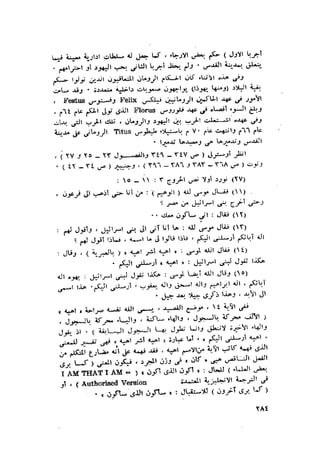 أجربا الاول ) حكم بعض الارجاء ، كما جعل له سلطات ادارية معينة فيما
يتعلق بمدينة القدس ٠ ولم يحظ أجربا الثانى بحب اليهود أو احترامهم ٠
وفى هذه الاثناء كان الحكام الرومان المتعاقبون الذين تولوا حكم
بقية البلاد (ومنها يهوذا) يواجهون صعوبات داخلية متعددة ٠ وقد ساءت
الأمور فى عهد الحاكمين الرومانيين فيلكس Felix وفستوس Festus ،
وبلغ السوء أقصاه فى عهد فلوروس Florus الذى تولى الحكم عام ٦٤م ٠
وفى عهده اشتعلت الحرب بين اليهود والرومان ، تلك الحرب التى بدأت
عام ٦٦م وانتهت عام ٧٠ م باستيلاء طيطوس Titus الرومانى على مدينة
القدس وتدميرها هى ومعبدها تدميرا ٠
انظر أوسترلى ( ص ٣٤٧ - ٣٤٩ والفصول ٢٣ - ٢٥ و ٢٧ ) ،
ونوت ( ص ٣٦٨ - ٣٨٣ و ٣٨٦ - ٣٩٦ ) ، وجنيبر ( ص ٣٤ - ٤٢ ) ٠
(٢٧) نورد أولا نص الخروج ٣ : ١١ - ١٥ :
(١١) فقال موسى لله ( الوهيم ) : من أنا حتى أذهب الى فرعون ٠
وحتى أخرج بنى اسرائيل من مصر ؟
(١٢) فقال : انى سأكون معك ٠٠
(١٣) فقال موسى لله : ها أنا آتى الى بنى اسرائيل ، وأقول لهم :
اله آبائكم أرسلنى اليكم ٠ فاذا قالوا لى ما اسمه ، فماذا أقول لهم ؟
(١٤) فقال الله لموسى : « اهيه أشر اهيه » ( بالعبرية ) ، وقال :
هكذا تقول لبنى اسرائيل : « اهيه » أرسلنى اليكم ٠
(١٥) وقال الله أيضا لموسى : هكذا تقول لبنى اسرائيل : يهوه اله
آبائكم ، اله ابراهيم واله اسحق واله يعقوب ، أرسلنى اليكم٠ هذا اسمى
الى الأبد ، وهذا ذكرى جيلا بعد جيل ٠
ففى الآية ١٤ ، موضع القصيد ، يسمى الله نفسه صراحة « اهيه »
( الألف محركة بالسجول ، والهاء ساكنة ، والياء محركة بالسجول ،
والهاء الأخيرة لا تنطق وانما تطول بها السجول السابقة ) ، اذ يقول
« اهيه أرسلنى اليكم » ٠ أما عبارة « اهيه أشر اهيه » فهى تفسير للمعنى
الذى فهمه كاتب الآية من الاسم اهيه ، فقد فهمه على أنه مضارع المتكلم من
الفعل الناقص هيى « كان » فى وزن المجرد ، فيكون المعنى ( كما يرى
بعض العلماء ) للحال : « أكون الذى أكون » ( = I AM THAT I AM
فى الترجمة الانجليزية المعتمدة Authorised Version ) ، أو
( كما يرى آخرون ) للاستقبال : « سأكون الذى سأكون » ٠
٢٨٤